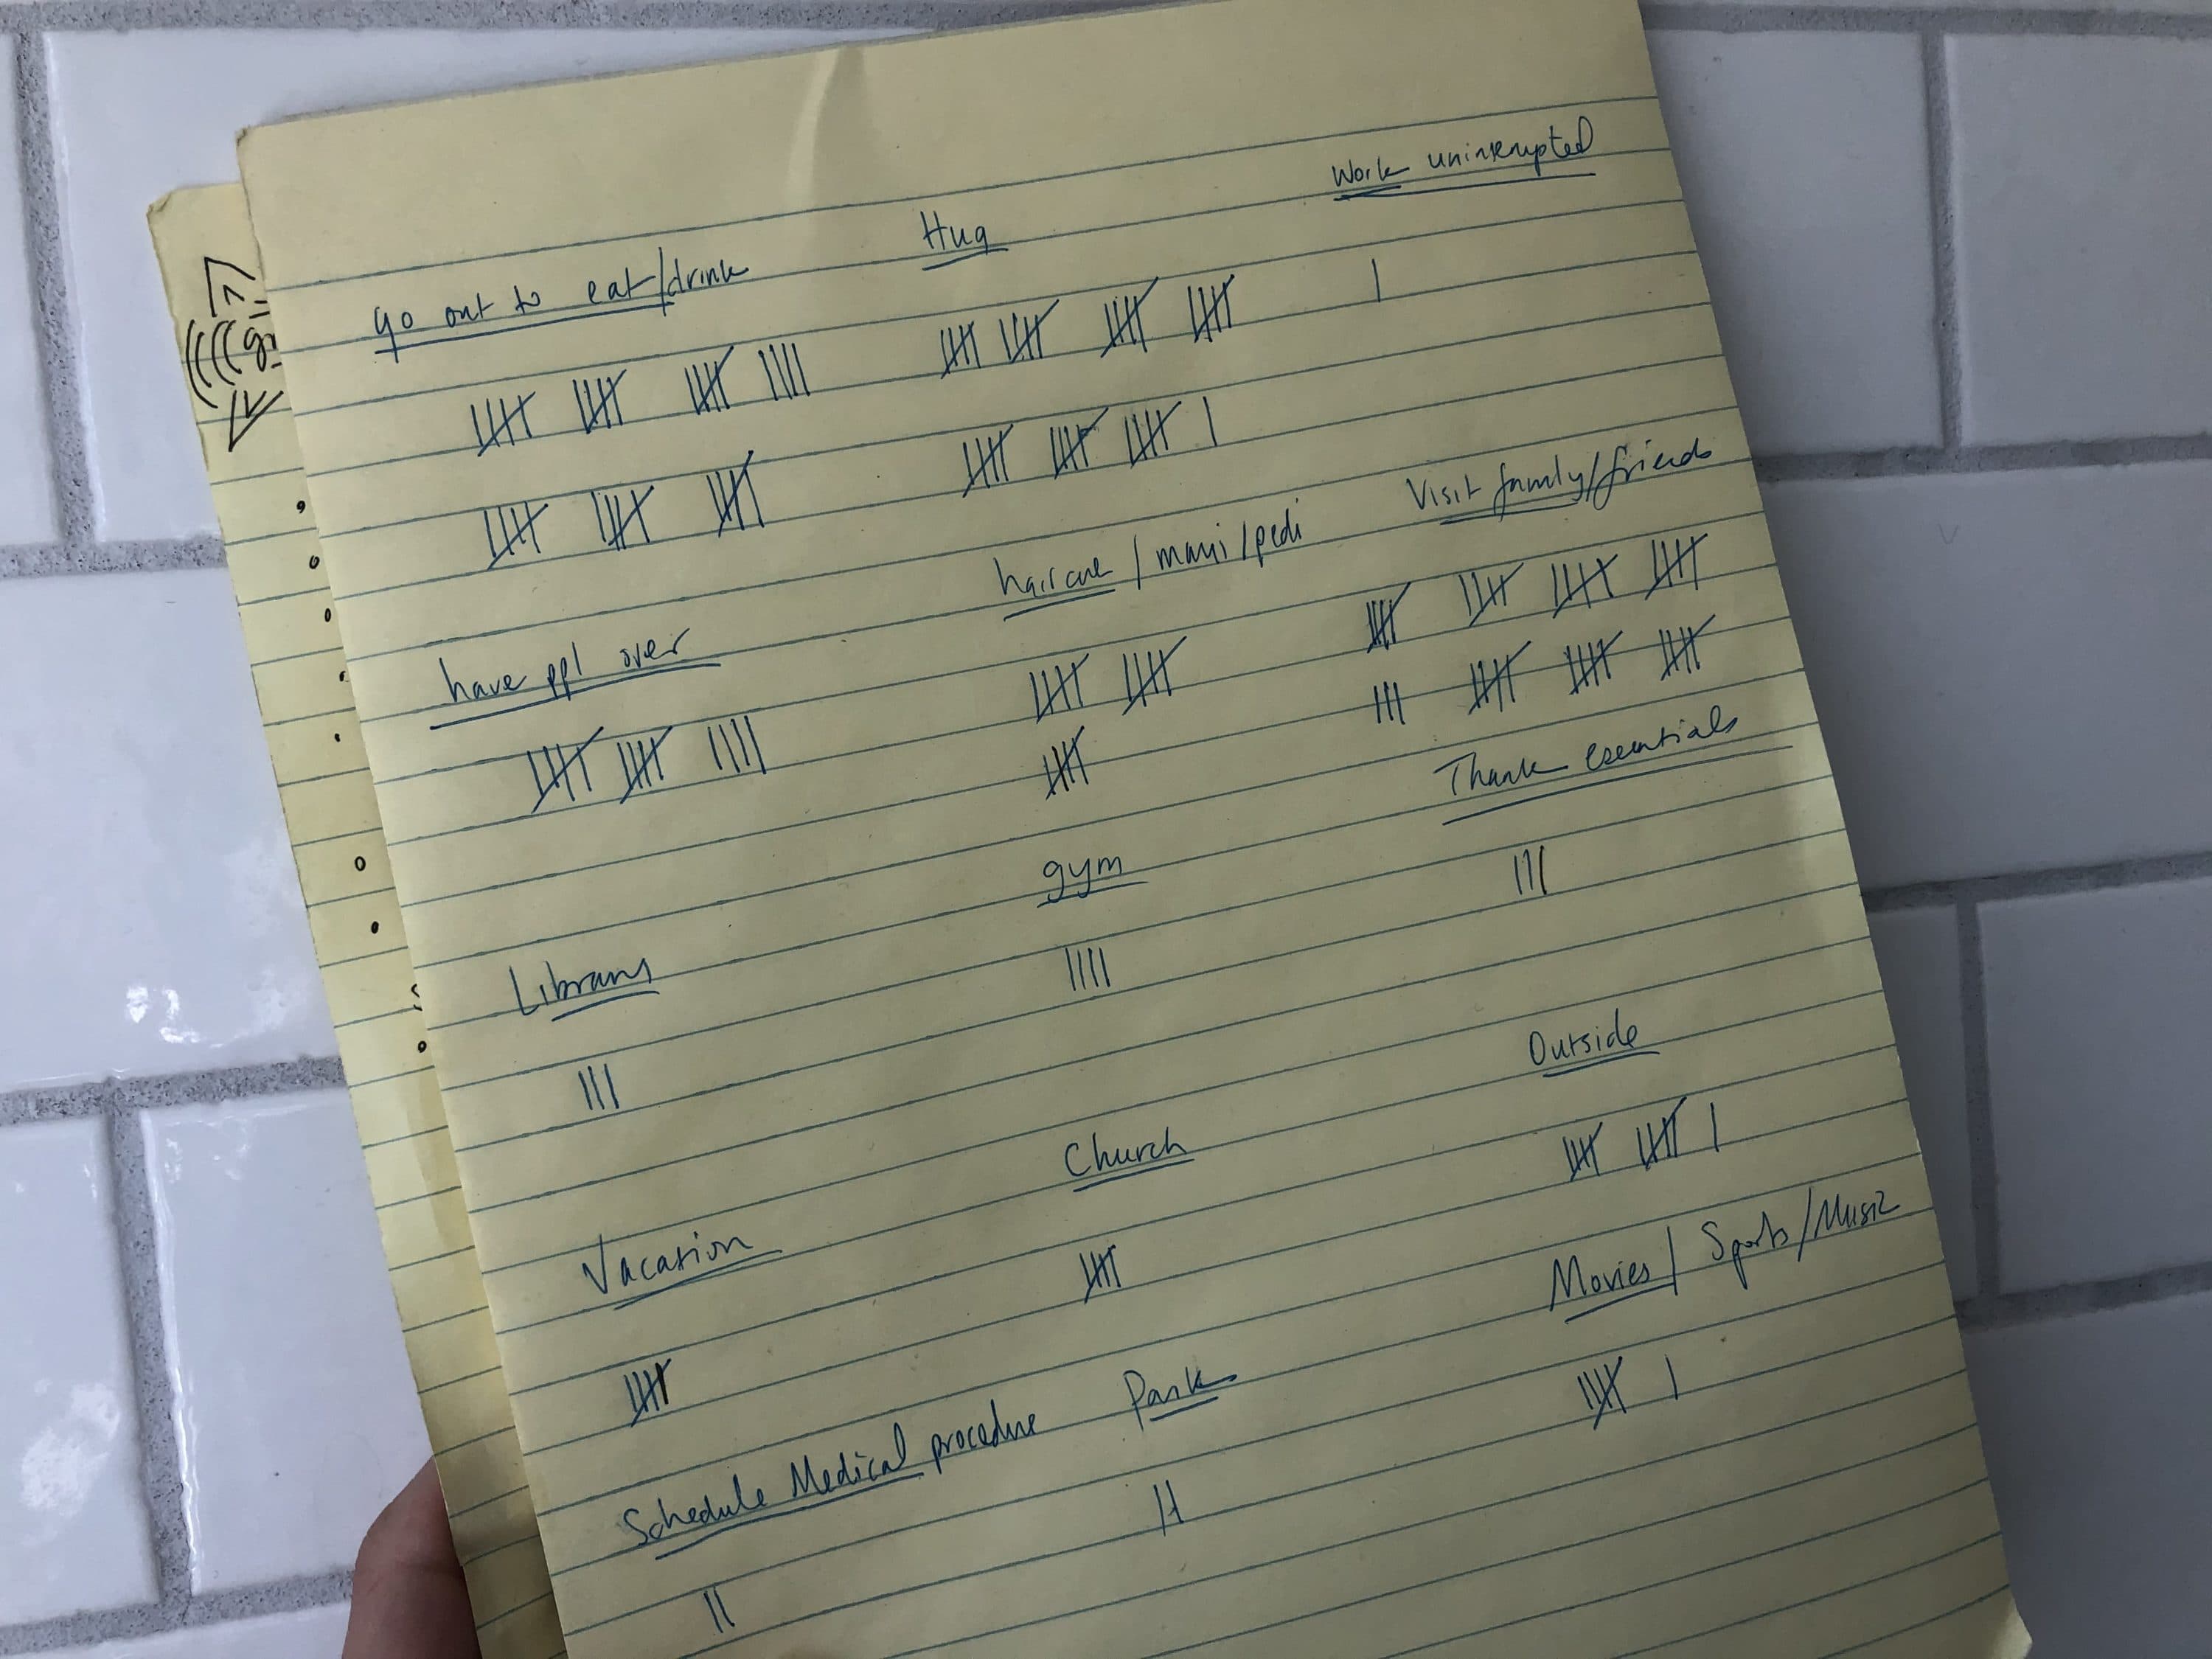 Work uninterrupted
Hug
go out to eat/drink
Visit family/friends
haircut / mani/pedi
have ppl over
Thank essentials
gym
Library
Outside
Church
Vacation
Movies / Sports/Music
Park
Schedule Medical procedure